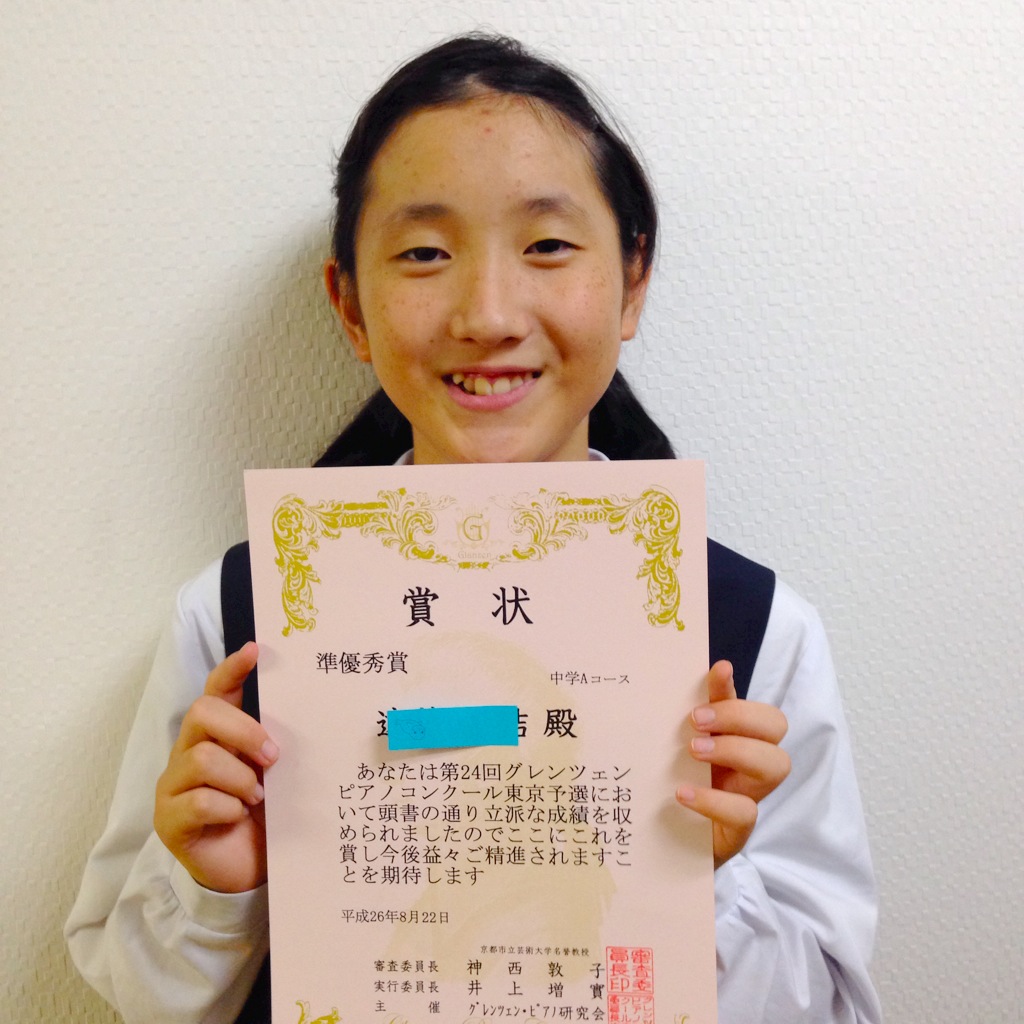 G
Glanzen
賞 状
準優秀賞
中学Aコース
殿
あなたは第24回グレンツェン
ピアノコンクール東京予選にお
いて頭書の通り立派な成績を収
められましたのでここにこれを
賞し今後益々ご精進されますこ
とを期待します
平成26年8月22日
京都市立芸術大学名誉教授
審査委員長 神 西 敦 子
実行委員長 井 上 増 實
主 催 グレンツェン・ピアノ研究会
審査委員長印